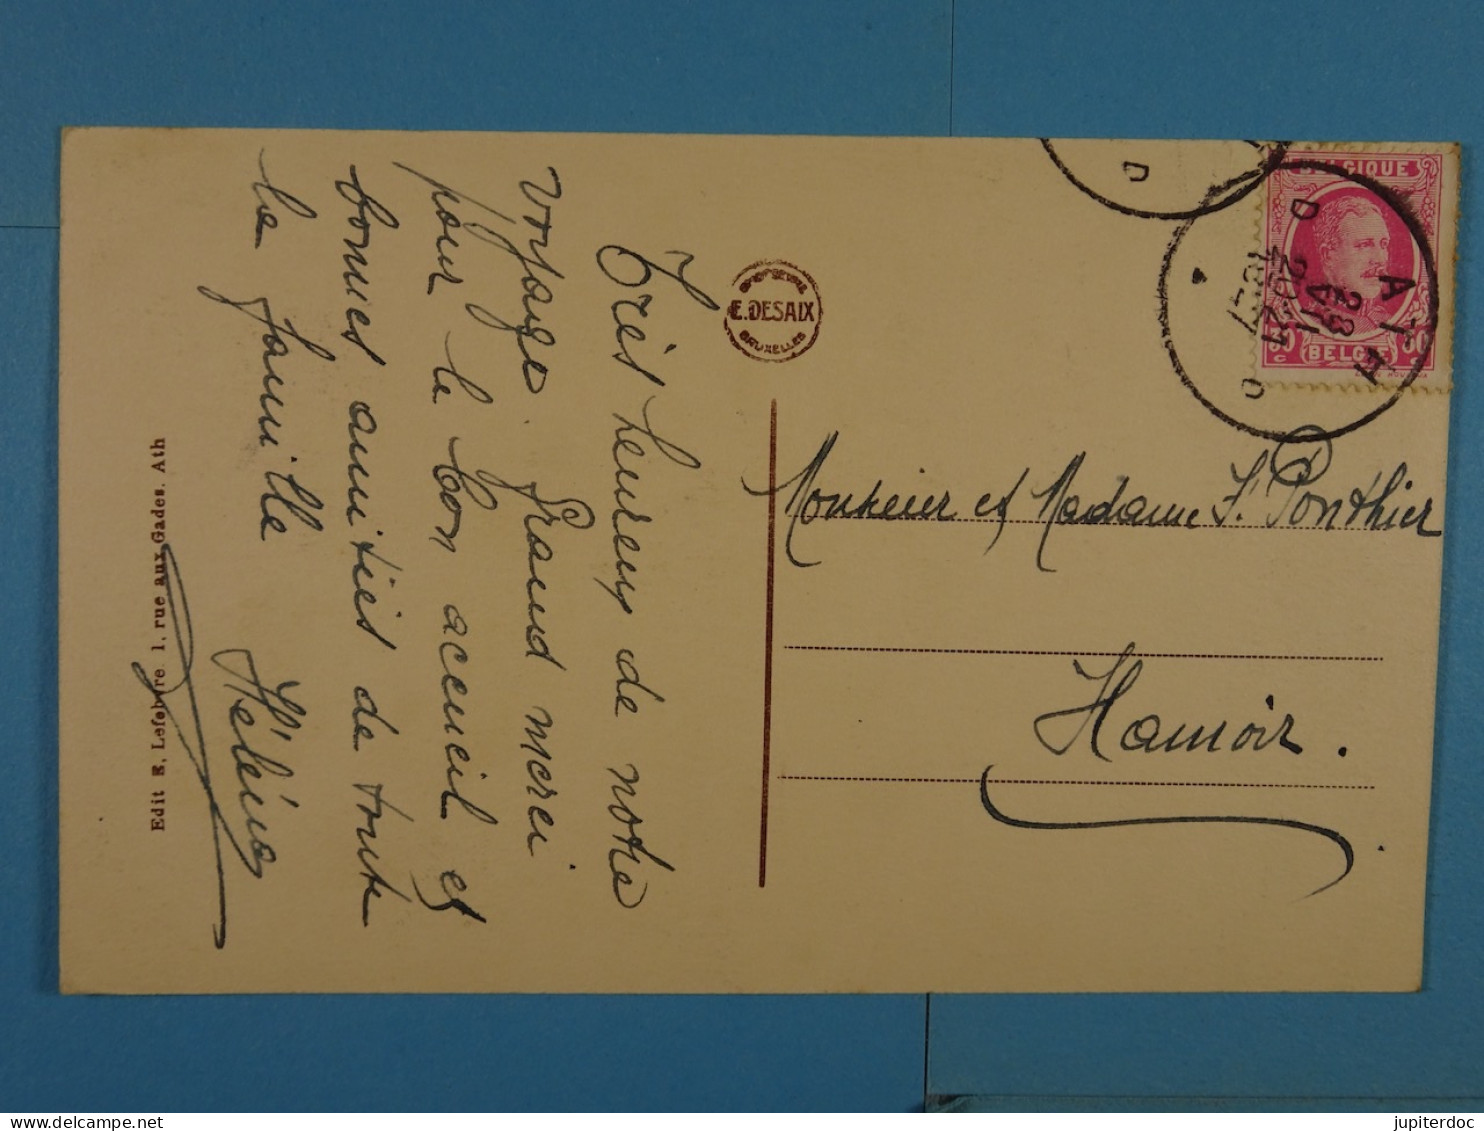 Très heureux de notre
voyage. Grand merci
pour le bon accueil et
bonnes amitiés de toute
la famille
Hélène
Edit E. Lefebvre 1, rue aux Gades. Ath
E. DESAIX
BRUXELLES
BELGIQUE
60 60
BELGIË
ATH
Monsieur et Madame F. Ponthier
Hamoir.
jupiterdoc